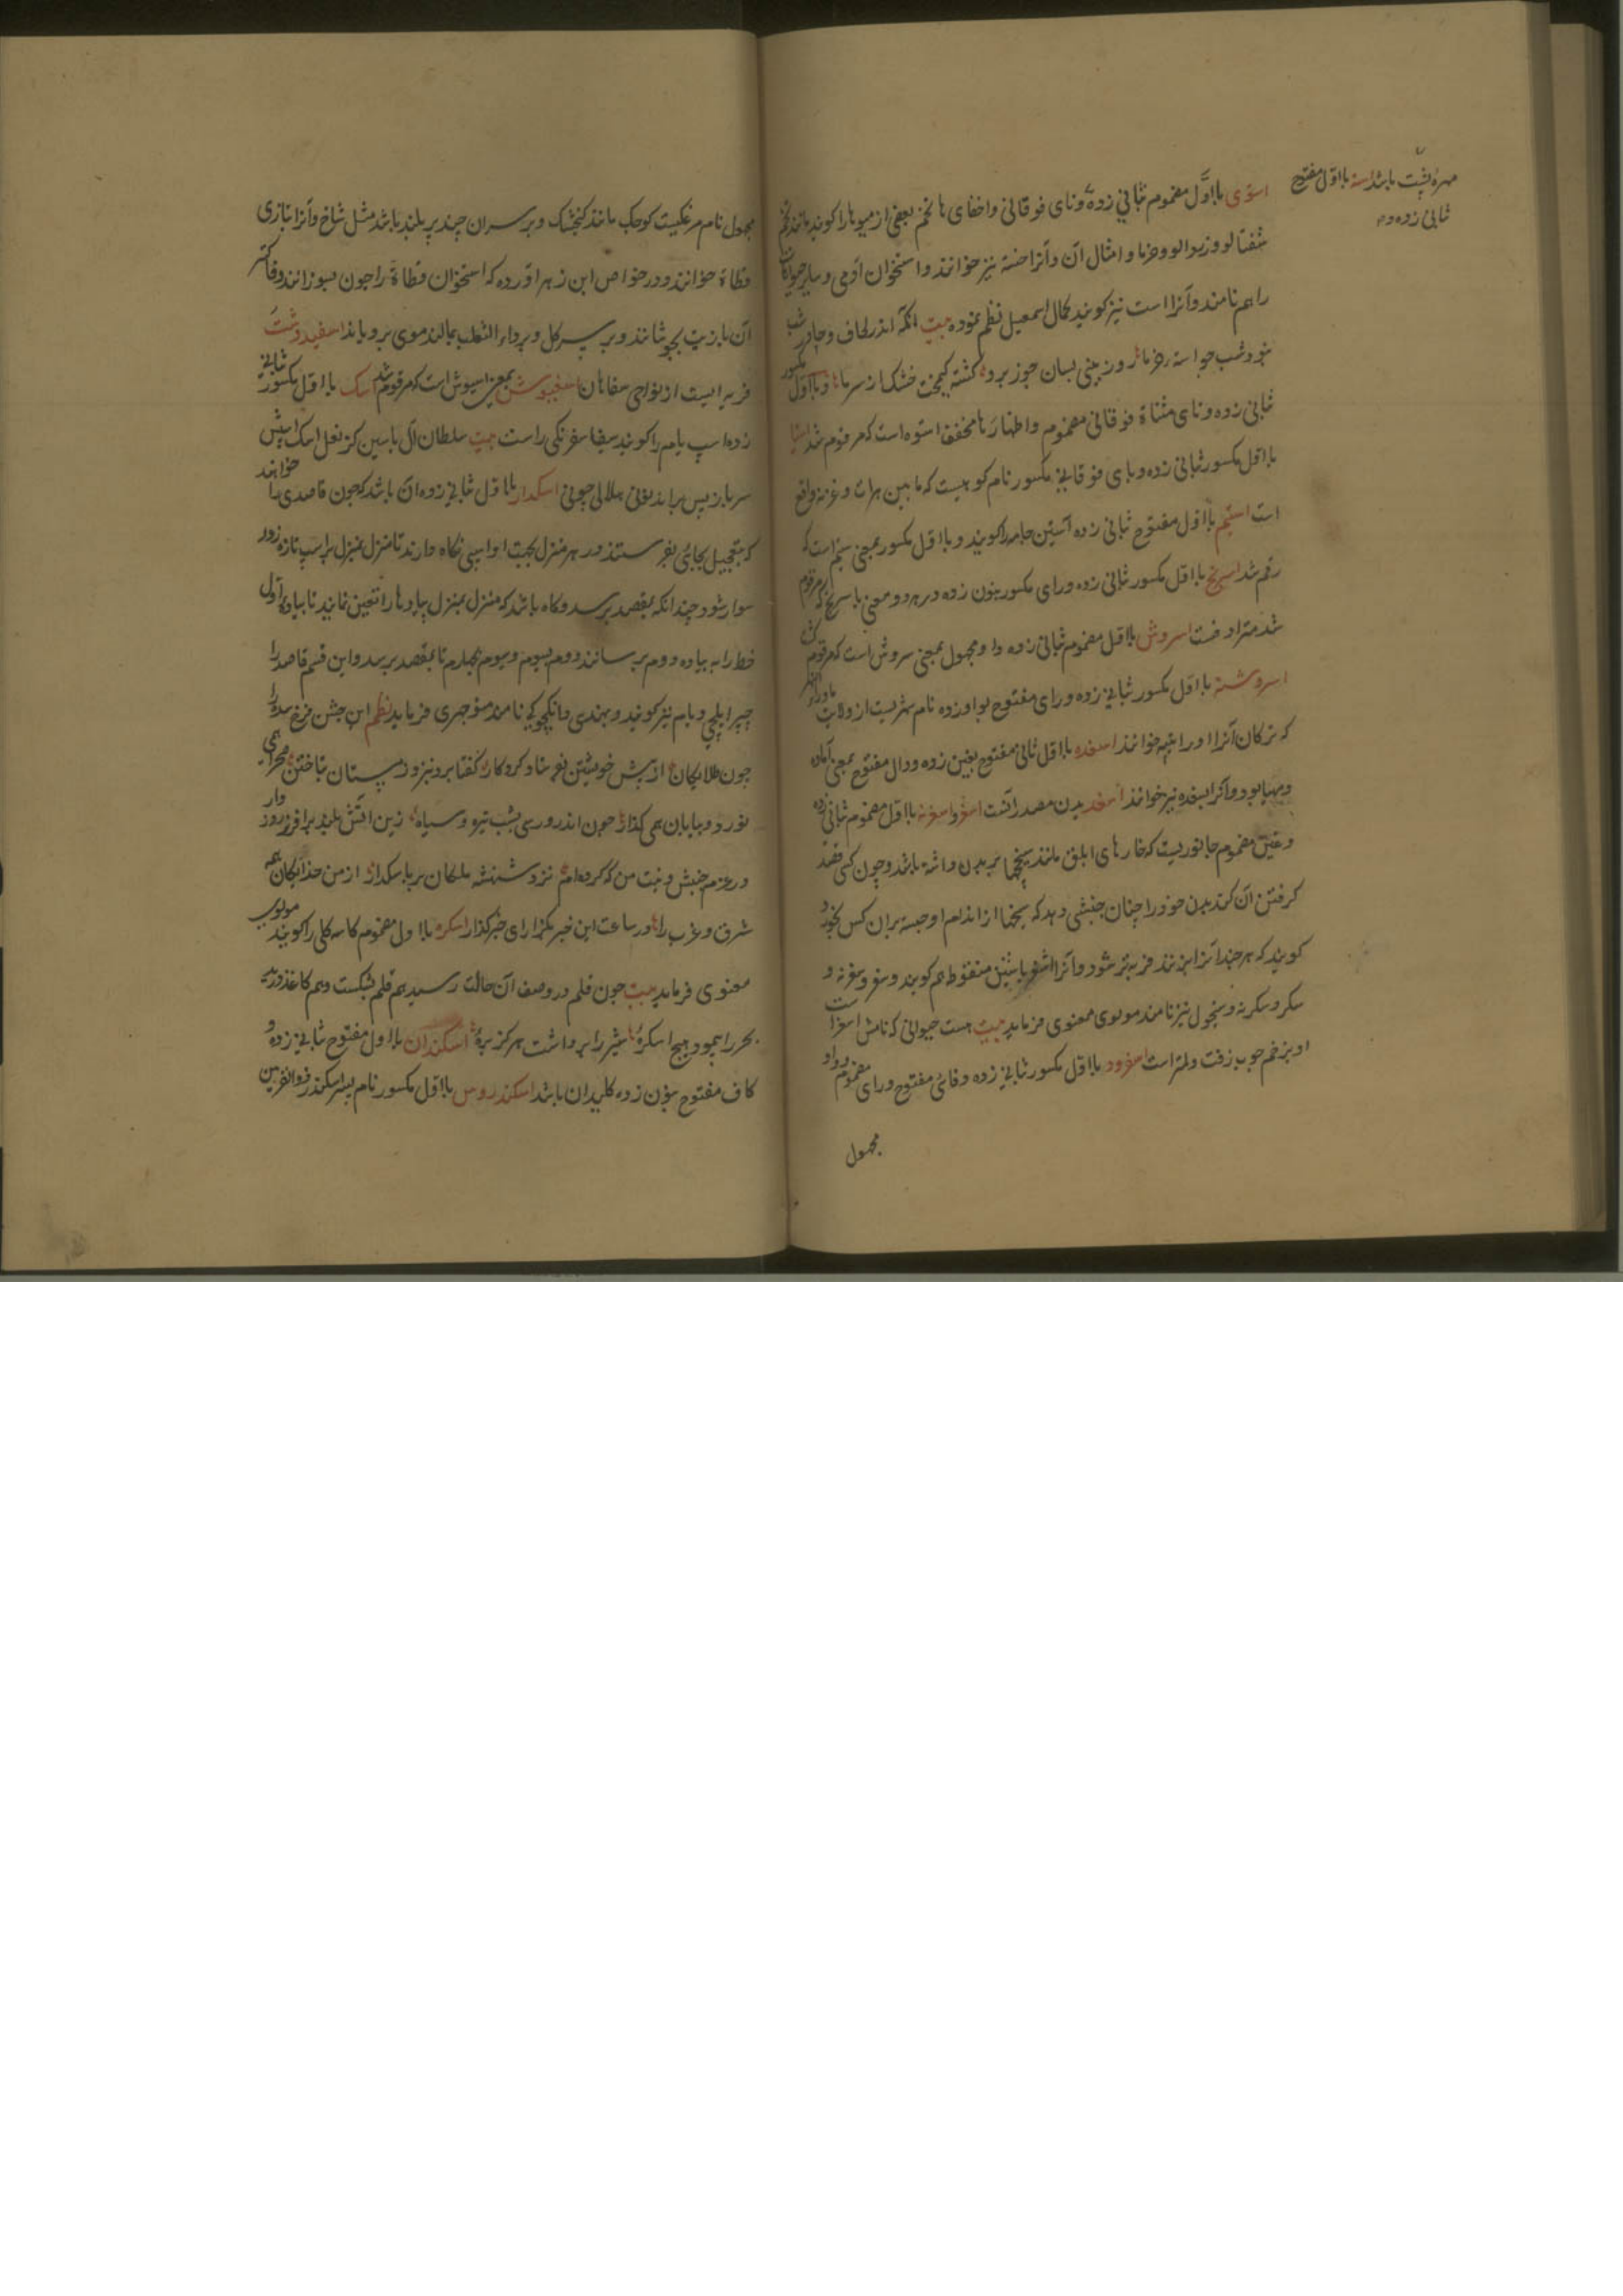 مهره پشت باشد استه بااول مفتوح
ثانی زده و
استوی بااول مضموم ثانی زده و تای فوقانی واخفای ها تخم بعضی از میوها را کویند مانند تخم
شفتالو و زردالو و خرما و امثال آن و آنرا خسته نیز خوانند و استخوان آدمی و سایر حیوانات
را هم نامند و آنرا است نیز کویند کمال اسمعیل نظم نموده بیت انکه اندر لحاف و چادر شب
بود وشب چو استه خرما روز بینی بسان جوز برو کشته کیمخت خشک از سرما و بااول مکسور
ثانی زده و تای مثناة فوقانی مضموم واظهار ها مخفف استوه است که مرقوم شد
بااول مکسور ثانی زده و یای فوقانی مکسور نام کوهیست که مابین هرات وغزنه واقع
است استیم بااول مفتوح ثانی زده آستین جامه را کویند و بااول مکسور بمعنی ستیم است که
رقم شد اسرنج بااول مکسور ثانی زده و رای مکسور بنون زده در هر دو معنی با سرنج که مرقوم
شد مترادفست اسروش بااول مضموم ثانی زده و واو مجهول بمعنی سروش است که مرقوم کشت
اسروشنه بااول مکسور ثانی زده و رای مفتوح بواو زده نام شهریست از ولایت ماوراء النهر
که ترکان آنرا اوراتپه خوانند اسغده بااول ثانی مفتوح بغین زده و دال مفتوح بمعنی آماده
و مهیا بود و آنرا بسغده نیز خوانند اسغد بدن مصدر آنست اسغر و اسغرنه بااول مضموم ثانی زده
و غین مضموم جانوریست که خارهای ابلق مانند سیخها بر بدن داشته باشد و چون کسی قصد
کرفتن آن کند بدن خود را چنان جنبشی دهد که سیخها از اندام او جسته بران کس خورد
کویند که هر چند آنرا بزنند فربه تر شود و آنرا اشغر باشین منقوط هم کویند و سغر و سغرنه و
سکر و سکرنه و سیخول نیز نامند مولوی معنوی فرماید بیت هست حیوانی که نامش اسغر است
او بزخم چوب زفت و لمتر است اسفرود بااول مکسور ثانی زده و فای مفتوح و رای مضموم و واو
مجهول
مجهول نام مرغکیست کوچک مانند کنجشک و بر سر ان چند پر بلند باشد مثل شاخ و آنرا بتازی
قطاة خوانند و در خواص ابن زهر آورده که استخوان قطاة را چون بسوزانند و خاکستر
آن بازیت بجوشانند و بر سر کل و بر داء الثعلب بمالند موی برویاند اسفید دشت
قریه ایست از نواحی صفاهان اسفیوش بمعنی اسپیوش است که مرقوم شد اسک بااول مکسور ثانی
زده اسپ یامه را کویند سیفا سفرنکی راست بیت سلطان آل یاسین کز نعل اسک اسپش
سر باز پس براند نونی هلالی چونی اسکدار بااول ثانی زده آن باشد که چون قاصدی را خواهند
که بتعجیل بجائی بفرستند در هر منزل بجهت او اسپی نکاه دارند تا منزل بمنزل بر اسپ تازه زور
سوار شود چندانکه بمقصد برسد و کاه باشد که منزل بمنزل پیاده‌ها را تعیین نمایند تا پیاده اول
خط را به پیاده دوم برساند و دوم بسوم و سوم بچهارم تا بمقصد برسد و این قسم قاصد را
چپر ایلچی و یام نیز کویند و بهندی دانکچوکی نامند منوچهری فرماید نظم این جشن فرخ سده را
چون طلایکان از پیش خویشتن بفرستاد کردکار کفتا برو بنزد زمستان بتاختن صحرا همی
نورد و بیابان همی کذار چون اندرو رسی بشب تیره و سیاه زین آتش بلند برافروز روز وار
در عزم جنبش و نیت من که کرده ام نزد شهنشه ملکان بر باسکدار از من خدایکان همه
شرق و غرب را در ساعت این خبر بکزار ای خبرکذار اسکره بااول مضموم کاسه کلی را کویند مولوی
معنوی فرماید بیت چون قلم در وصف آن حالت رسید هم قلم بشکست و هم کاغذ درید
بحر را پیمود هیچ اسکره شیر را برداشت هرکز بره اسکندان بااول مفتوح ثانی زده و
کاف مفتوح بنون زده کلیدان باشد اسکندروس بااول مکسور نام پسر اسکندر ذوالقرنین